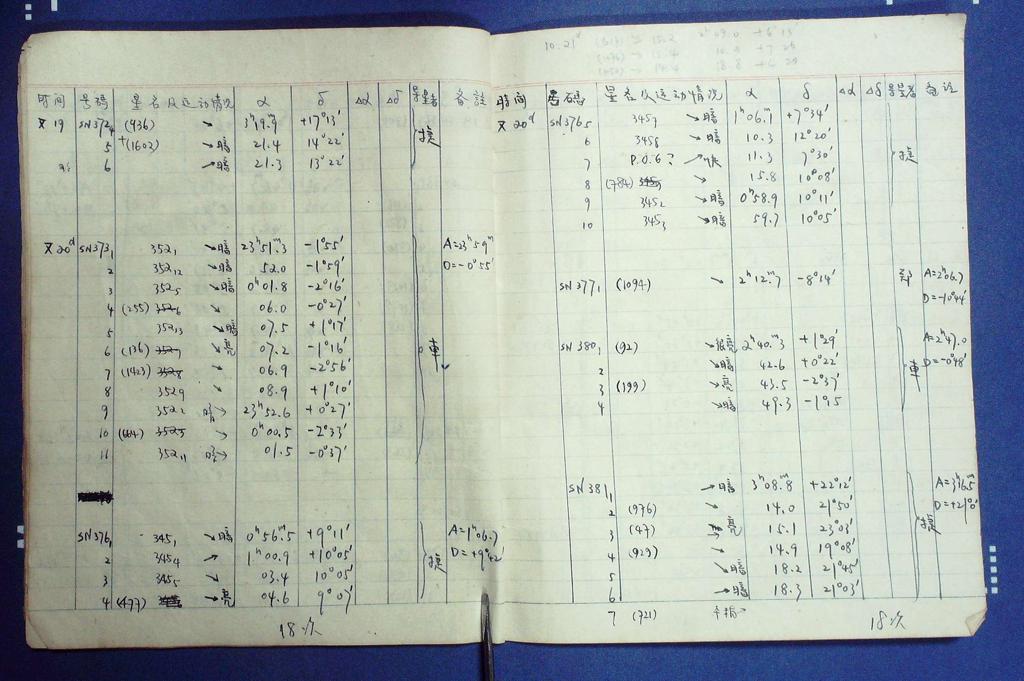 时间 号码 星名及运动情况 α δ Δα Δδ 寻星者 备註
X 19 SN372₄ (436) ↘ 3ʰ19.ᵐ9 +17°13' 捷
5 +(1602) ↘暗 21.4 14°22'
6 ↘暗 21.3 13°22'
X 20ᵈ SN373₁ 352₁ ↘暗 23ʰ51.ᵐ3 -1°55' A=23ʰ59ᵐ
2 352₁₂ ↘暗 52.0 -1°59' D=-0°55'
3 352₅ ↘暗 0ʰ01.8 -2°16'
4 (255) ↘ 06.0 -0°27'
5 352₁₃ ↘暗 07.5 +1°17'
6 (136) ↘亮 07.2 -1°16' 車
7 (1423) ↘ 06.9 -2°56'
8 352₉ ↘ 08.9 +1°10'
9 352₂ 暗→ 23ʰ52.6 +0°27'
10 ↘ 0ʰ00.5 -2°33'
11 352₁₁ 暗→ 01.5 -0°37'
SN376₁ 345₁ ↘暗 0ʰ56.ᵐ5 +9°11' 捷 A=1ʰ06.7
2 345₄ ↘ 1ʰ00.9 +10°05' D=+9°42'
3 345₅ ↘ 03.4 10°05'
4 (477) ↘亮 04.6 9°07'
18次
10.21ᵈ
时间 号码 星名及运动情况 α δ Δα Δδ 寻星者 备註
X 20ᵈ SN376₅ 345₇ ↘暗 1ʰ06.ᵐ1 +7°34'
6 345₈ ↘暗 10.3 12°20'
7 P.O.6? ↗快 11.3 7°30' 捷
8 (784) ↘ 15.8 10°08'
9 345₂ ↘暗 0ʰ58.9 10°11'
10 345₃ ↘暗 59.7 10°05'
SN377₁ (1094) ↘ 2ʰ12.ᵐ7 -8°14' A=2ʰ06.7
D=-10°44'
SN380₁ (92) ↘很亮 2ʰ40.ᵐ3 +1°29' A=2ʰ47.0
2 ↘暗 42.6 +0°22' 車 D=-0°48'
3 (199) ↘亮 43.5 -2°37'
4 ↘暗 49.3 -1°15
SN381₁ →暗 3ʰ08.ᵐ8 +22°12' A=3ʰ16.5
2 (976) → 14.0 21°50' D=+21°0'
3 (47) 亮 15.1 23°03' 捷
4 (929) ↘ 14.9 19°08'
5 ↘暗 18.2 21°45'
6 ↘暗 18.3 21°03'
7 (721)
18次